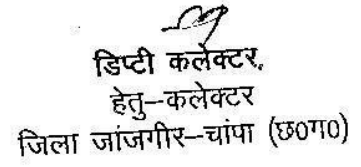 डिप्टी कलेक्टर,
हेतु–कलेक्टर
जिला जांजगीर–चांपा (छ०ग०)